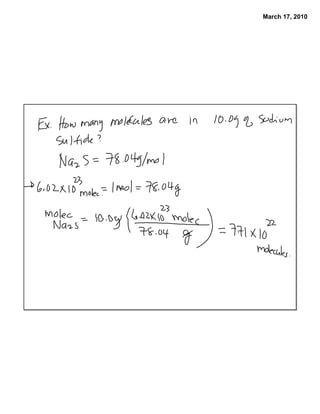 March 17, 2010
Ex. How many molecules are in 10.0g of Sodium
Sulfide?
Na₂S = 78.04g/mol
→ 6.02x10²³ molec. = 1mol = 78.04g
molec Na₂S = 10.0g (6.02x10²³ molec / 78.04 g) = 771 x 10²² molecules.